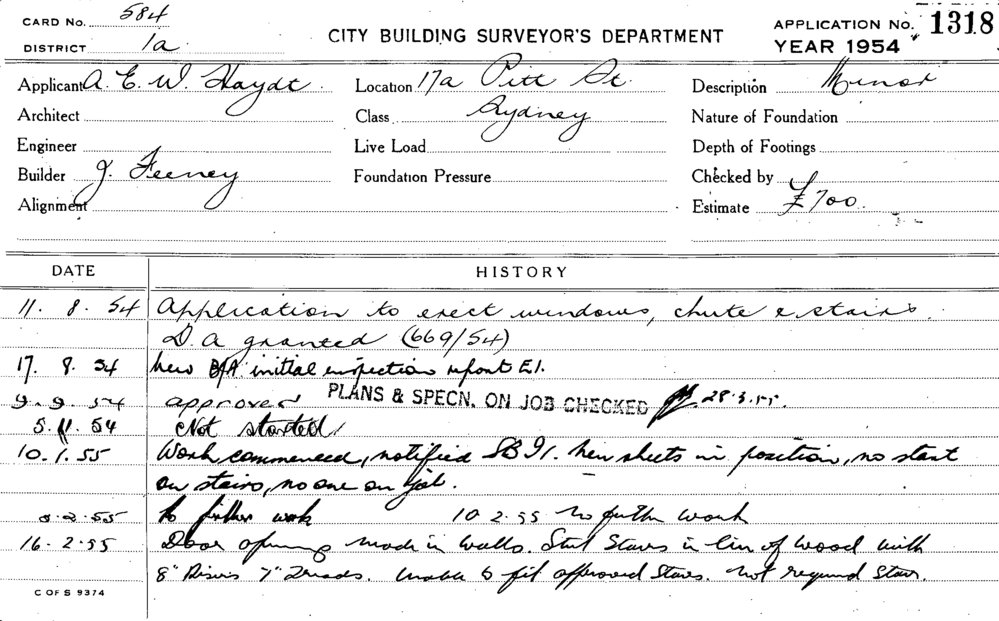 CARD NO. 584
DISTRICT 1a
CITY BUILDING SURVEYOR'S DEPARTMENT
APPLICATION NO. 1318
YEAR 1954
Applicant A. E. W. Haydt. Location 17a Pitt St. Description Minor
Architect Class Sydney Nature of Foundation
Engineer Live Load Depth of Footings
Builder J. Feeney Foundation Pressure Checked by
Alignment Estimate £700.
DATE HISTORY
11. 8. 54 Application to erect windows, chute & stairs.
D. A granted (669/54)
17. 8. 54 New B/A initial inspection report E1.
9. 9. 54 approved PLANS & SPECN. ON JOB CHECKED 28.3.55.
5. 11. 54 Not started.
10. 1. 55 Work commenced, notified SB 91. New sheets in position, no start
on stairs, no one on job.
2. 55 No further work 10 2. 55 No further work
16. 2. 55 Door opening made in walls. Steel Stairs in lieu of wood with
8" Risers 7" Treads. Unable to fit approved Stairs. not required Stair.
C OF S 9374